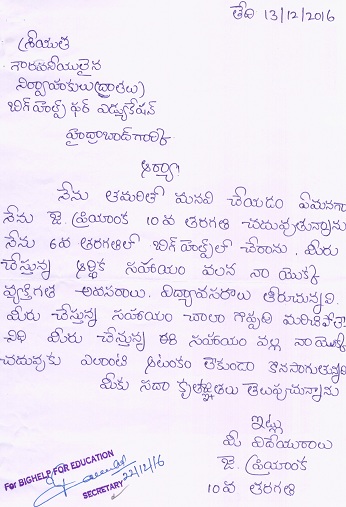 తేది 13/12/2016
శ్రీయుత
గౌరవనీయులైన
నిర్వాహకులు(దాతలు)
బిగ్ హెల్ప్ ఫర్ ఎడ్యుకేషన్
హైద్రాబాద్ గారికి
ఆర్యా
నేను తమరితో మనవి చేయడం ఏమనగా
నేను జె. ప్రియాంక 10వ తరగతి చదువుతున్నాను
నేను 6వ తరగతిలో బిగ్ హెల్ప్ లో చేరాను. మీరు
చేస్తున్న ఆర్థిక సహాయం వలన నా యొక్క
వ్యక్తిగత అవసరాలు. విద్యావసరాలు తీరుచున్నవి.
మీరు చేస్తున్న సహాయం చాలా గొప్పది మరిచిపోరా
నిది మీరు చేస్తున్న ఈ సహాయం వల్ల నా యొక్క
చదువుకు ఎలాంటి ఆటంకం లేకుండా కొనసాగుతున్నది
మీకు సదా కృతజ్ఞతలు తెలుపుచున్నాను
ఇట్లు
మీ విదేయురాలు
జె. ప్రియాంక
10వ తరగతి
For BIGHELP FOR EDUCATION
22/12/16
SECRETARY